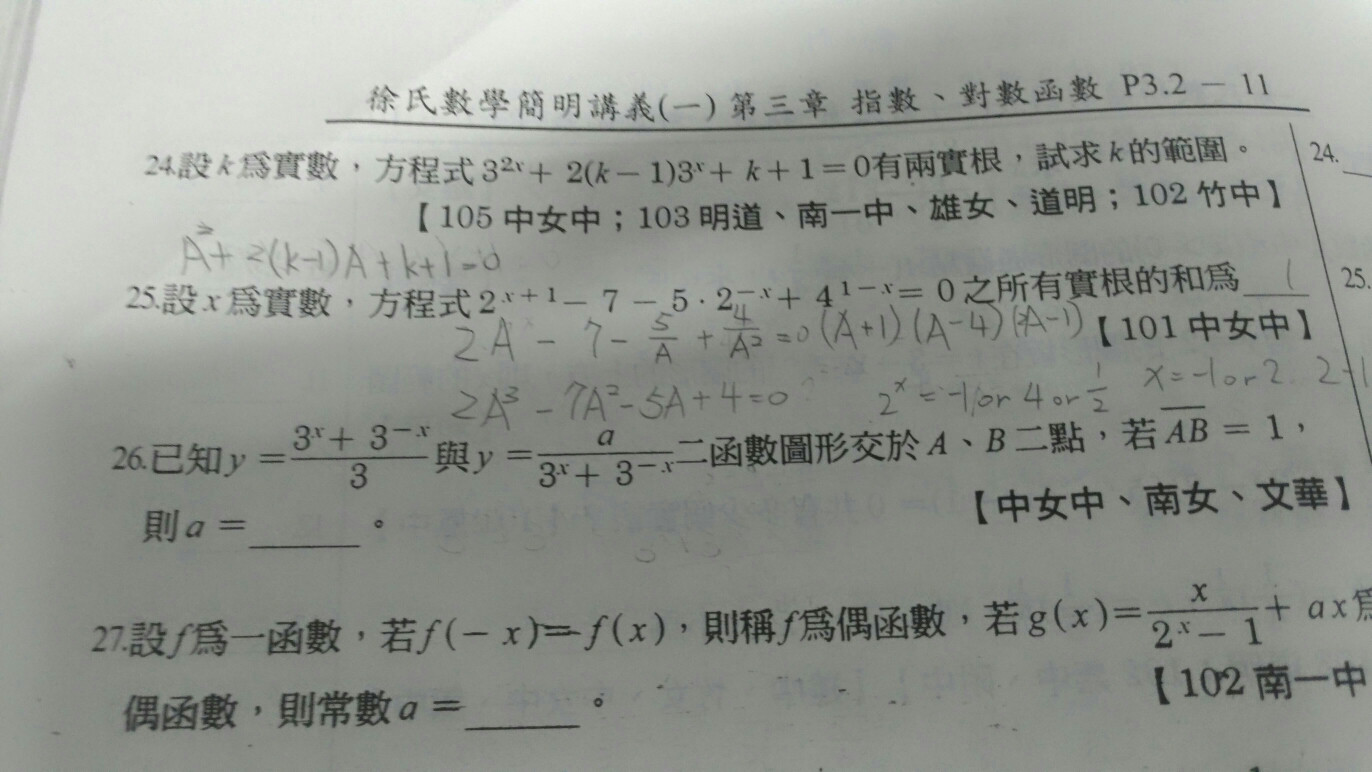 徐氏數學簡明講義(一) 第三章 指數、對數函數 P3.2 － 11
24.設k爲實數，方程式3²ˣ+ 2(k－1)3ˣ+ k＋1＝0有兩實根，試求k的範圍。
24.
【105 中女中；103 明道、南一中、雄女、道明；102 竹中】
A²+2(k-1)A+k+1=0
25.設x爲實數，方程式2ˣ⁺¹－7－5·2⁻ˣ+ 4¹⁻ˣ＝ 0 之所有實根的和爲 1
25.
2A - 7 - 5/A + 4/A² =0 (A+1)(A-4)(2A-1)
【101 中女中】
2A³ - 7A² - 5A + 4 = 0
2ˣ = -1 or 4 or 1/2
x = -1 or 2.
26.已知y＝(3ˣ+ 3⁻ˣ)/3 與y＝a/(3ˣ+ 3⁻ˣ) 二函數圖形交於A、B二點，若A̅B̅ ＝ 1，
則a＝______。
【中女中、南女、文華】
27.設f爲一函數，若f(－x)＝f(x)，則稱f爲偶函數，若g(x)＝x/(2ˣ－1)＋ ax爲
偶函數，則常數a＝______。
【102 南一中